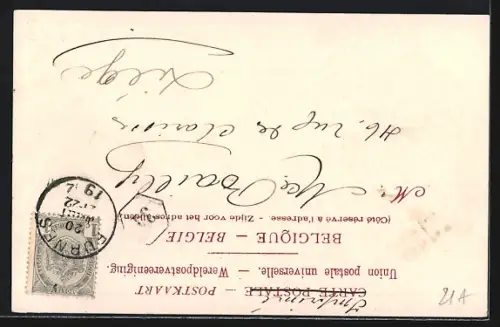 Imprimé
CARTE POSTALE – POSTKAART
Union postale universelle. – Wereldpostvereeniging.
BELGIQUE – BELGIE
(Côté réservé à l'adresse. – Zijde voor het adres alleen)
Bailly
46, rue de
Liége
FURNES
20
AOUT
1904
21A